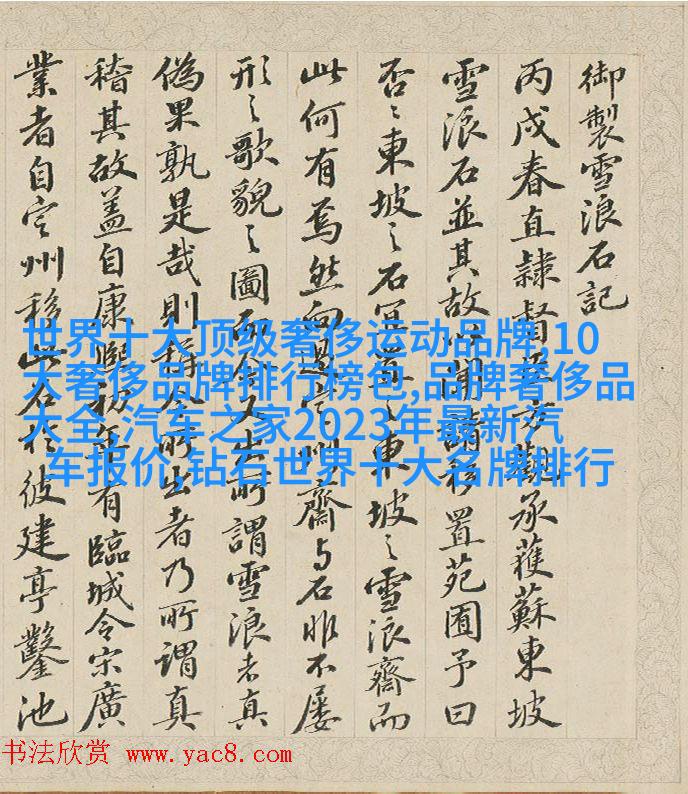 御製雪浪石記
丙戌春直隸督臣方觀承獲蘇東坡
雪浪石並其故以聞請移置苑囿予曰
否〻東坡之石宜置之東坡之雪浪齋而
此何有焉然向過定州齋與石非不屢
形之歌貌之圖而今又出所謂雪浪者真
偽果孰是哉則稱今所出者乃所謂真
稽其故蓋自康熙初年有臨城令宋廣
業者自定州移此石於彼建亭鑿池
世界十大顶级奢侈运动品牌,10
大奢侈品牌排行榜包,品牌奢侈品
大全,汽车之家2023年最新汽
车报价,钻石世界十大名牌排行
书法欣赏 www.yac8.com